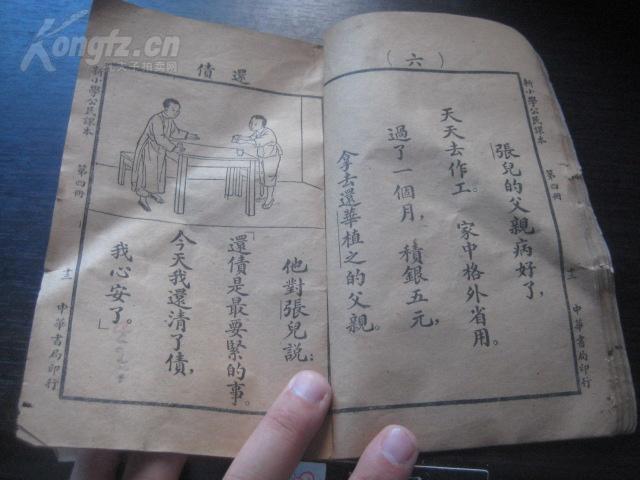 新小學公民課本
第四冊
十二
中華書局印行
（六）
張兒的父親病好了，
天天去作工。家中格外省用。
過了一個月，積銀五元，
拿去還華植之的父親。
還債
他對張兒說：
「還債是最要緊的事。
今天我還清了債，
我心安了。」
新小學公民課本
第四冊
十二
中華書局印行
Kongfz.cn
孔夫子拍卖网